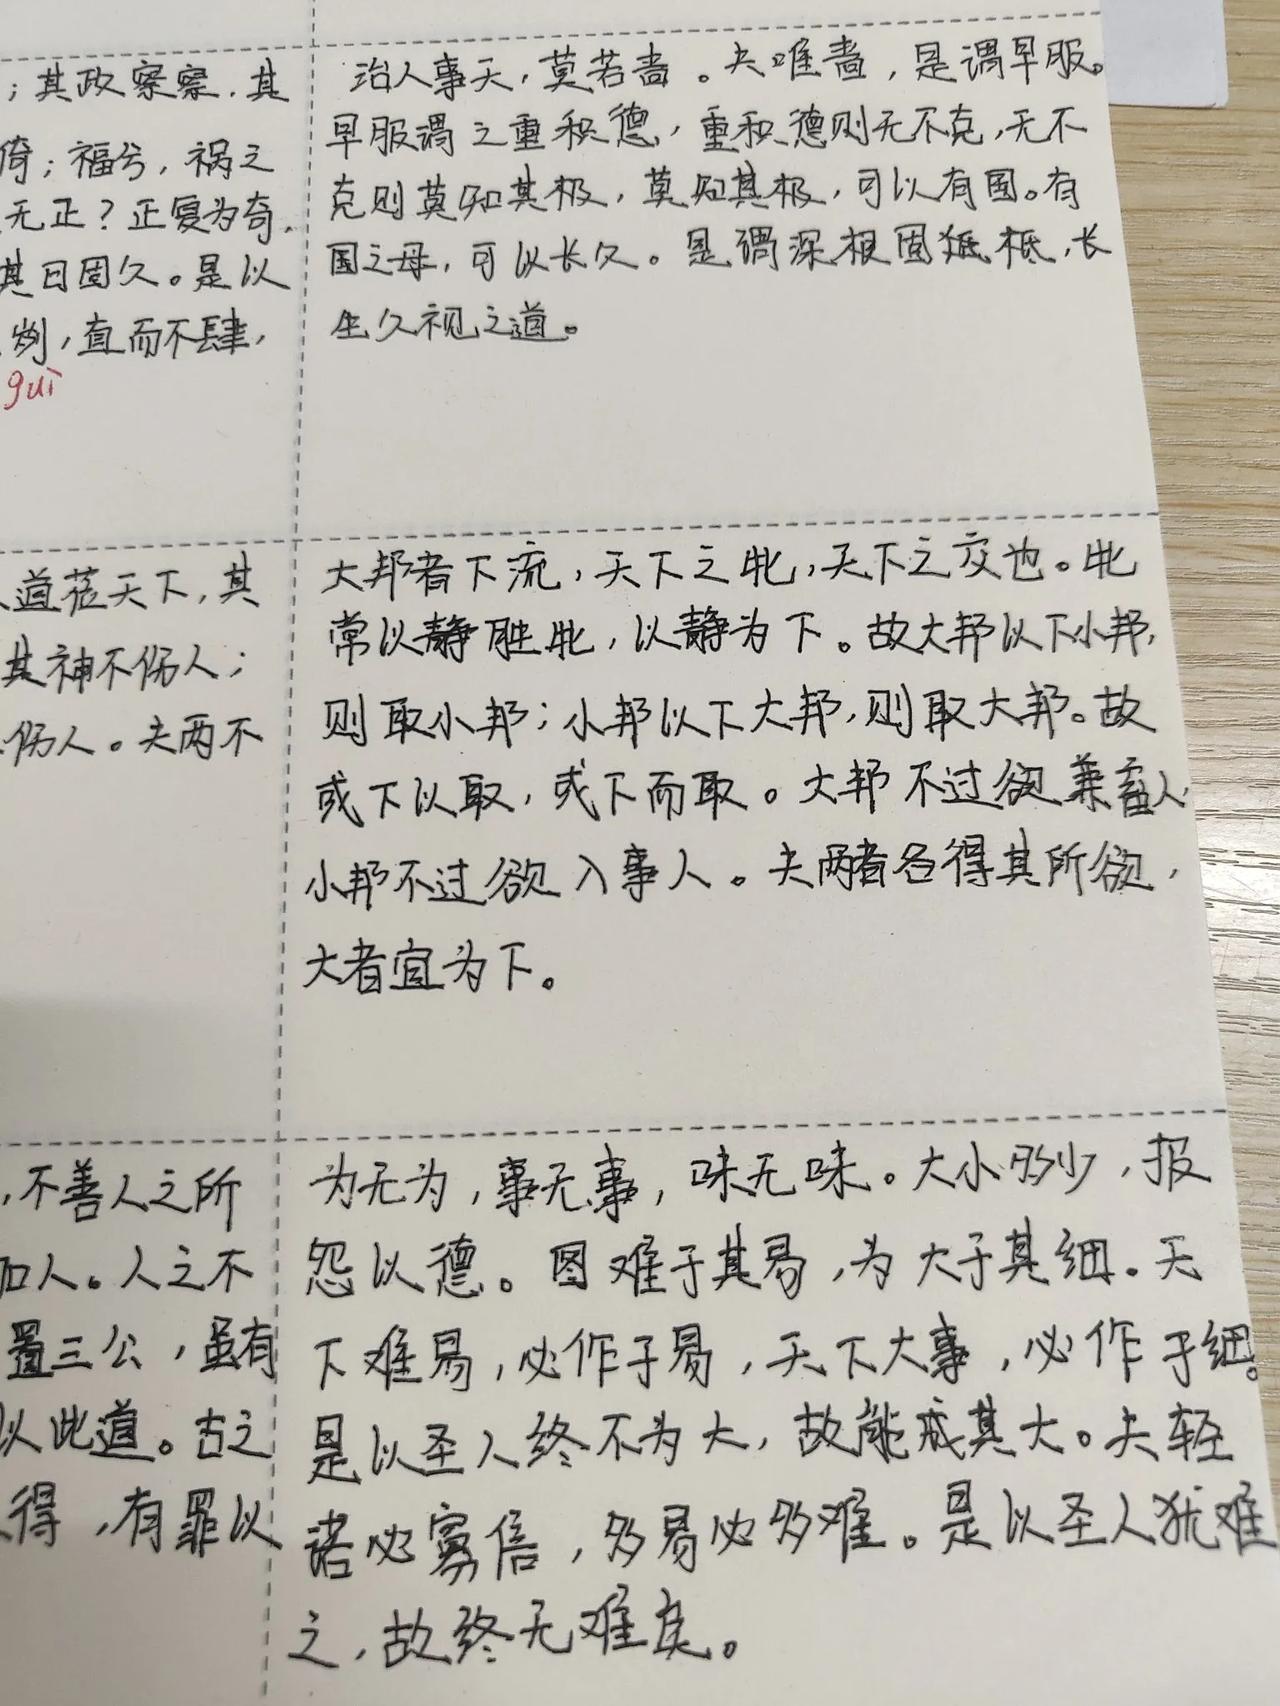 ；其政察察，其
倚；福兮，祸之
无正？正复为奇，
其日固久。是以
刿，直而不肆，
guì
治人事天，莫若啬。夫唯啬，是谓早服。
早服谓之重积德，重积德则无不克，无不
克则莫知其极，莫知其极，可以有国。有
国之母，可以长久。是谓深根固柢，长
生久视之道。
道莅天下，其
其神不伤人；
伤人。夫两不
大邦者下流，天下之牝，天下之交也。牝
常以静胜牝，以静为下。故大邦以下小邦，
则取小邦；小邦以下大邦，则取大邦。故
或下以取，或下而取。大邦不过欲兼畜人，
小邦不过欲入事人。夫两者各得其所欲，
大者宜为下。
，不善人之所
加人。人之不
置三公，虽有
以此道。古之
得，有罪以
为无为，事无事，味无味。大小多少，报
怨以德。图难于其易，为大于其细。天
下难易，必作于易，天下大事，必作于细。
是以圣人终不为大，故能成其大。夫轻
诺必寡信，多易必多难。是以圣人犹难
之，故终无难矣。